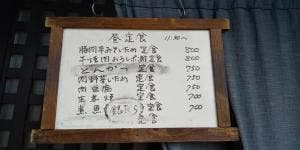 昼定食 11:30〜
豚肉辛みそいため 定食 800
牛リ 肉おろしポン酢 定食 800
とんかつ 定食 750
肉野菜いため 定食 750
肉豆腐 定食 750
生姜焼 定食 700
煮魚 銀だら 定食 700
定食